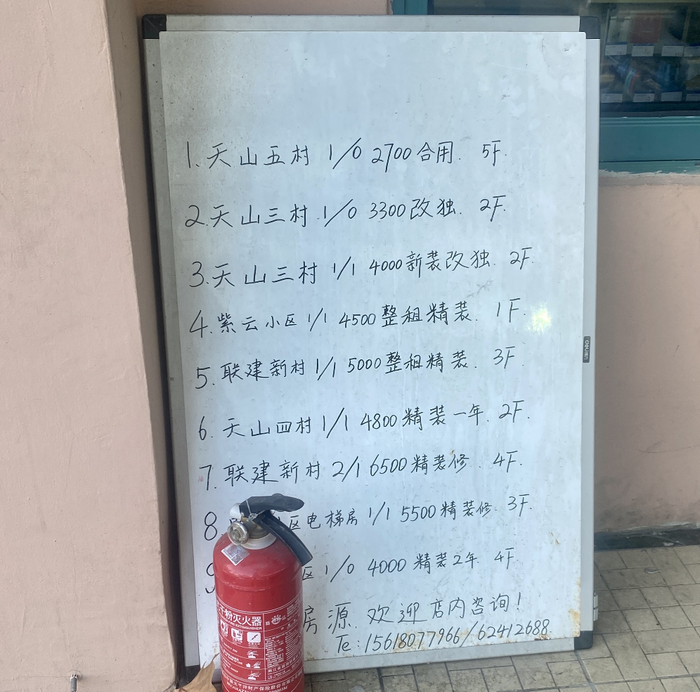 1. 天山五村 1/0 2700合用. 5F.
2. 天山三村 1/0 3300改独. 2F.
3. 天山三村 1/1 4000新装改独. 2F.
4. 紫云小区 1/1 4500整租精装. 1F.
5. 联建新村 1/1 5000整租精装. 3F.
6. 天山四村 1/1 4800精装一年. 2F.
7. 联建新村 2/1 6500精装修. 4F.
8 区电梯房 1/1 5500精装修. 3F.
9 区 1/0 4000精装2年 4F.
房源 欢迎店内咨询!
Te: 15618077966/62412688
粉灭火器